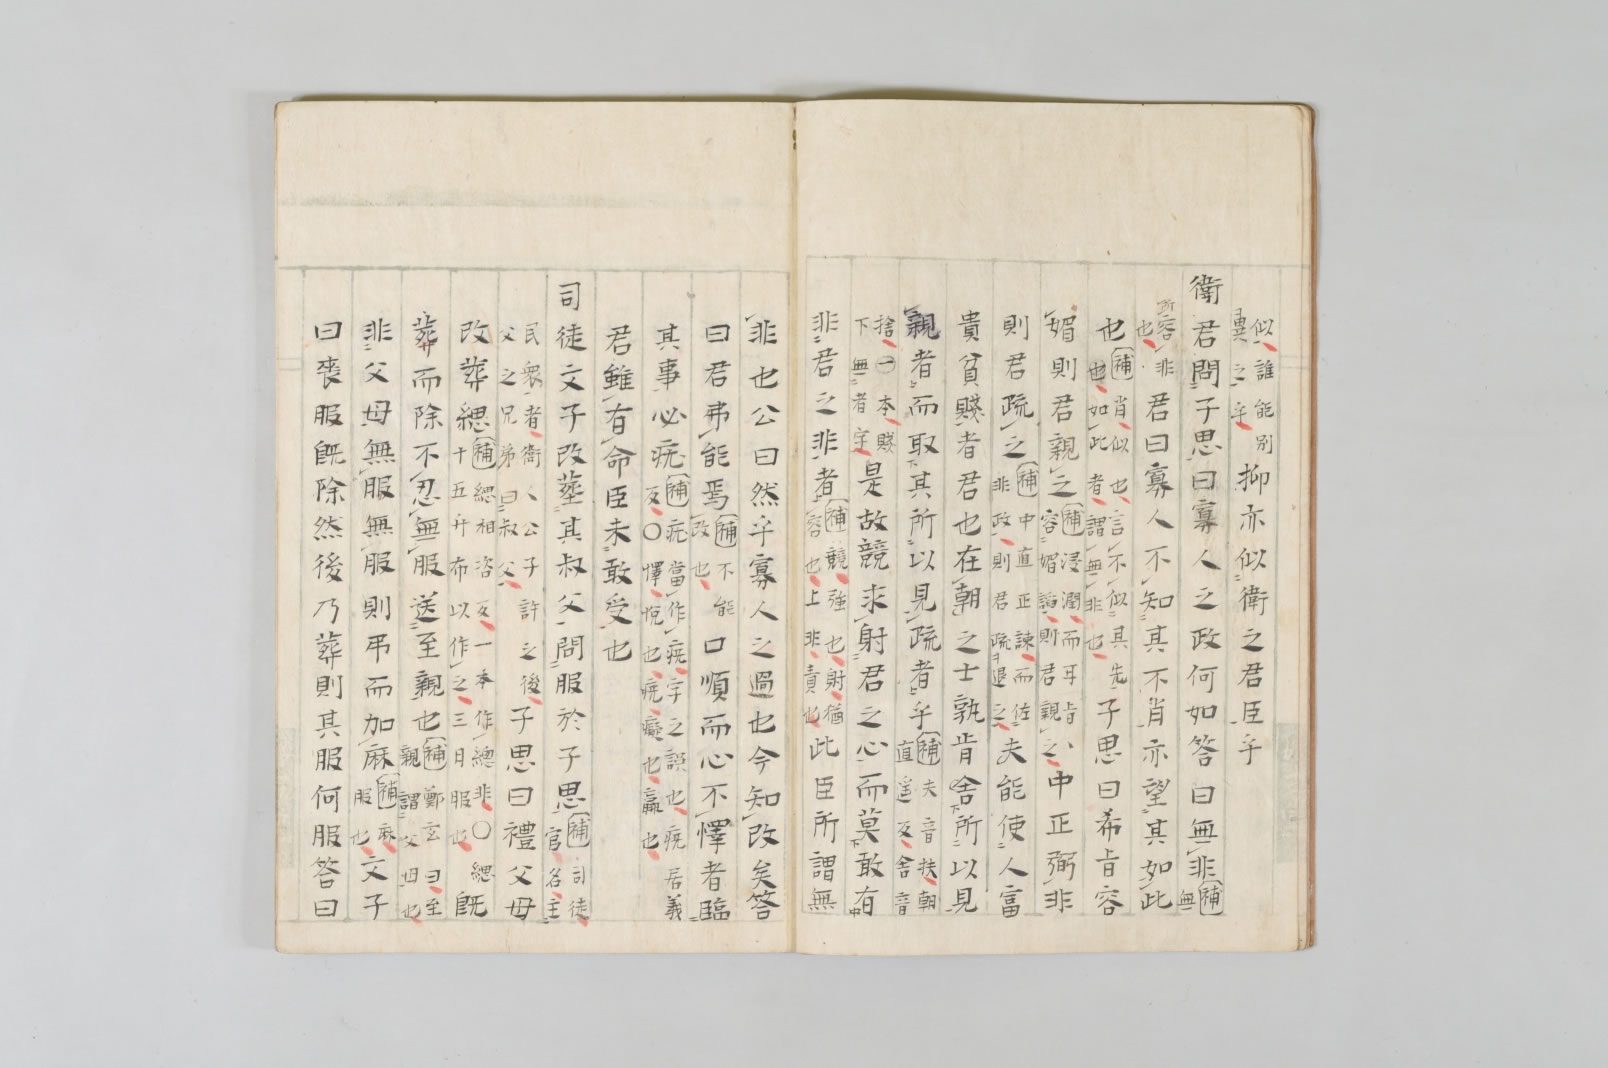 似誰能別異之乎抑亦似衛之君臣乎
衛君問子思曰寡人之政何如答曰無非補無
所容也非君曰寡人不知其不肖亦望其如此
也補肖似也言不似其先也如此者謂無非也子思曰希旨容
媚則君親之補浸潤而耳旨容媚謟則君親之中正弼非
則君疏之補中直正諫而佐非政則君疏退之夫能使人富
貴貧賤者君也在朝之士孰肯舍所以見
親者而取其所以見疏者乎補夫音扶朝直遥反舍音
捨一本賤下無者字是故競求射君之心而莫敢有
非君之非者補競強也射猶容也上非責也此臣所謂無
非也公曰然乎寡人之過也今知改矣答
曰君弗能焉補不能改也口順而心不懌者臨
其事必疣補疣當作疣字之誤也疣居義反○懌悅也疣癡也羸也
君雖有命臣未敢受也
司徒文子改葬其叔父問服於子思補司徒官名主
民衆者衛人公子許之後父之兄弟曰叔父子思曰禮父母
改葬緦補緦相咨反一本作總非○緦十五升布以作之三日服也既
葬而除不忍無服送至親也補鄭玄曰至親謂父母也
非父母無服無服則弔而加麻補麻服也文子
曰喪服既除然後乃葬則其服何服答曰